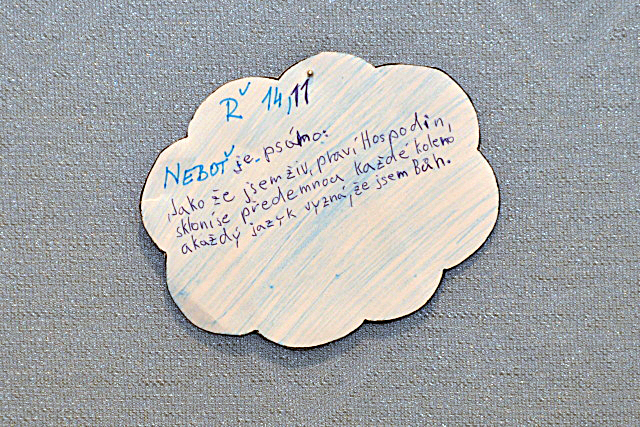 Ř 14,11
NEBOŤ je psáno:
‚Jako že jsem živ, praví Hospodin,
skloní se přede mnou každé koleno
a každý jazyk vyzná, že jsem Bůh.